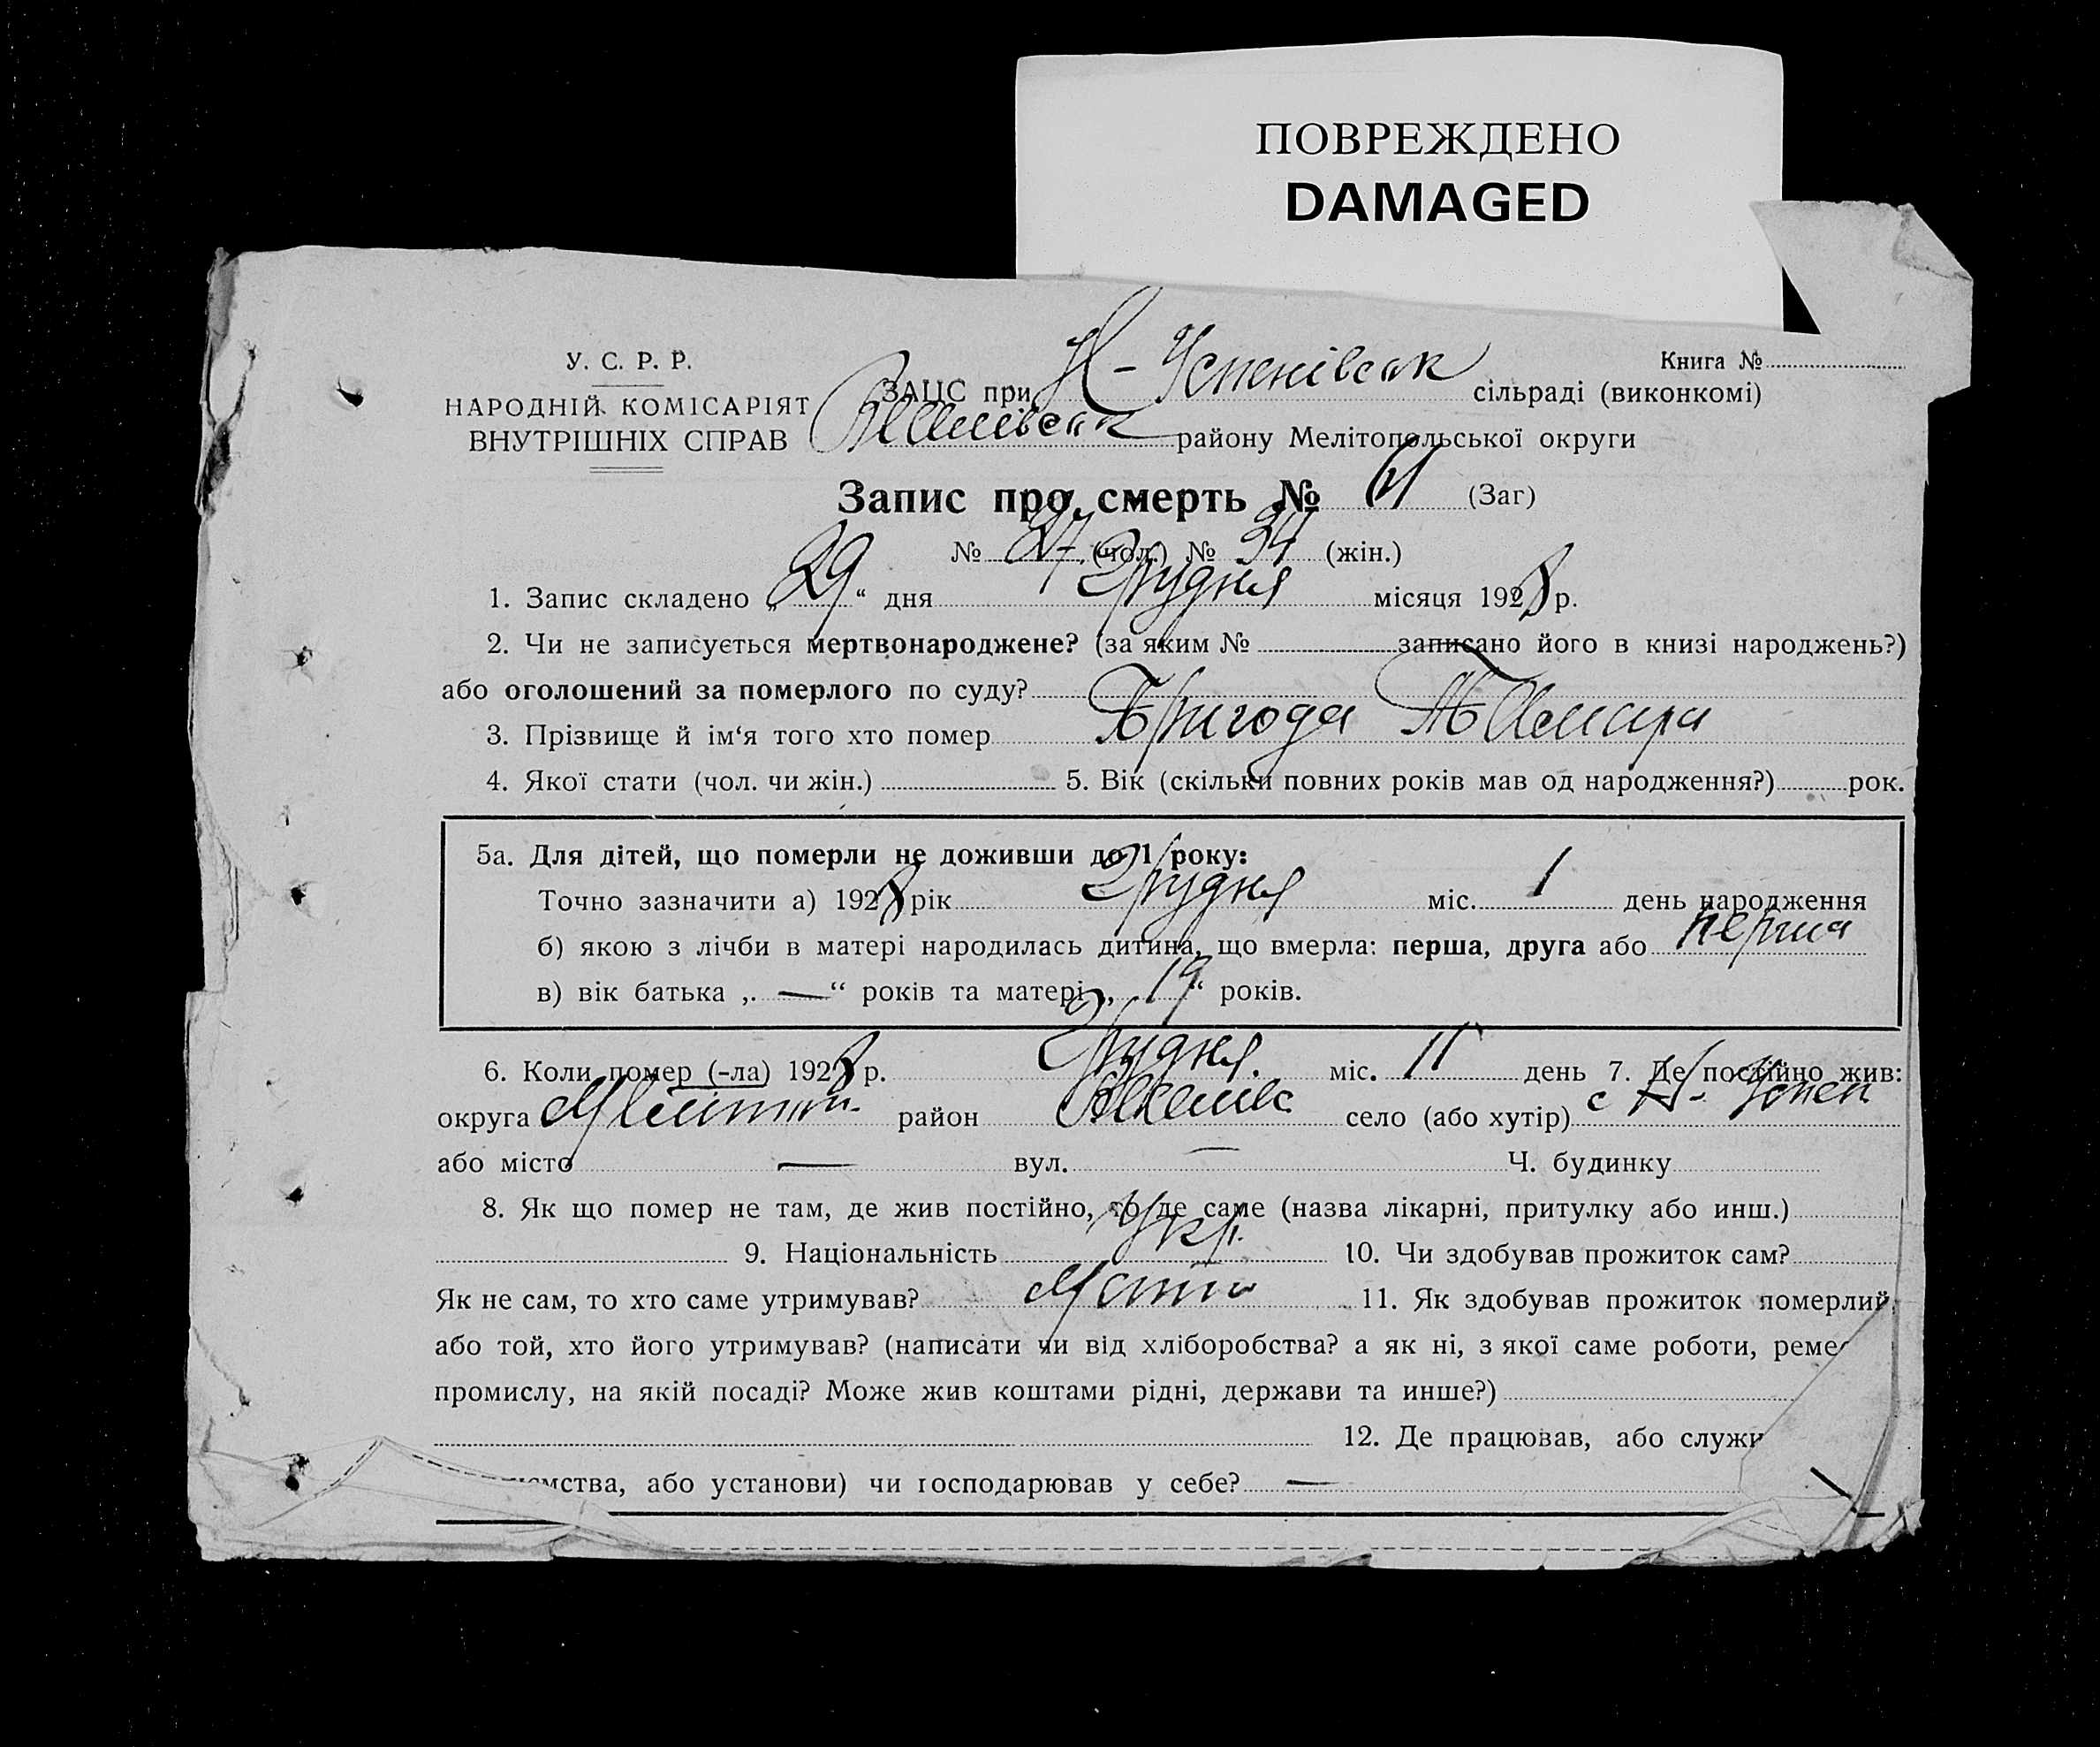 ПОВРЕЖДЕНО
DAMAGED
У. С. Р. Р.
НАРОДНІЙ КОМІСАРІЯТ
ВНУТРІШНІХ СПРАВ
Книга №
ЗАЦС при Н-Успенівськ сільраді (виконкомі)
району Мелітопольської округи
Запис про смерть № 61 (Заг)
№ 27 (чол.) № 34 (жін.)
1. Запис складено „29“ дня Грудня місяця 1928 р.
2. Чи не записується мертвонароджене? (за яким № записано його в книзі народжень?)
або оголошений за померлого по суду?
3. Прізвище й ім‘я того хто помер Пригода Тамара
4. Якої стати (чол. чи жін.) 5. Вік (скільки повних років мав од народження?) рок.
5а. Для дітей, що померли не доживши до 1 року:
Точно зазначити а) 1928 рік Грудня міс. 1 день народження
б) якою з лічби в матері народилась дитина, що вмерла: перша, друга або перша
в) вік батька „ — “ років та матері „ 19 “ років.
6. Коли помер (-ла) 1928 р. Грудня міс. 11 день 7. Де постійно жив:
округа Меліт. район село (або хутір) с Н-Успен
або місто — вул. — Ч. будинку
8. Як що помер не там, де жив постійно, то де саме (назва лікарні, притулку або инш.)
9. Національність Укр. 10. Чи здобував прожиток сам?
Як не сам, то хто саме утримував? Мати 11. Як здобував прожиток померлий,
або той, хто його утримував? (написати чи від хліборобства? а як ні, з якої саме роботи, реме
промислу, на якій посаді? Може жив коштами рідні, держави та инше?)
12. Де працював, або служи
ємства, або установи) чи господарював у себе? —